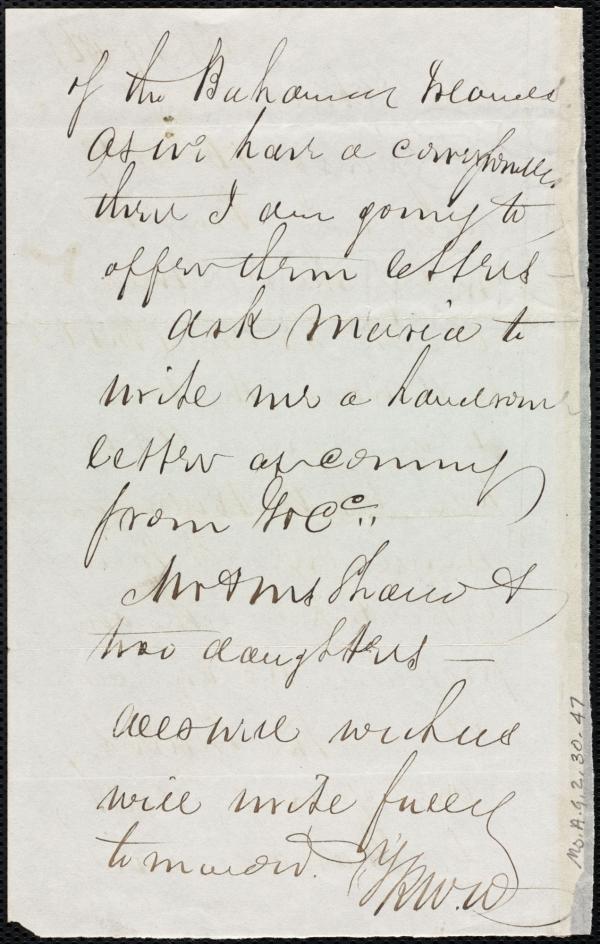 of the Bahama Islands
as we have a
there I am going to
offer them letters
ask Maria to
write me a handsome
letter as coming
from Co
Mr & Mrs Shaw &
two daughters —
all well
will write fully
tomorrow. RWW
Ms.A.9.2.30.47